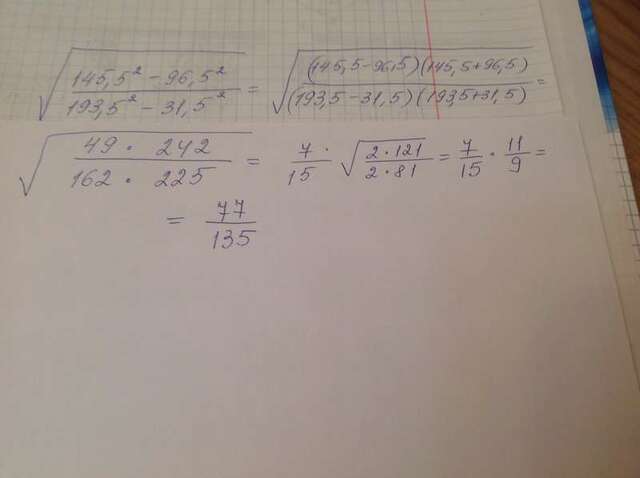 √(145,5² − 96,5² / 193,5² − 31,5²) = √((145,5−96,5)(145,5+96,5) / (193,5−31,5)(193,5+31,5)) =
√(49 · 242 / 162 · 225) = 7/15 · √(2·121 / 2·81) = 7/15 · 11/9 =
= 77/135